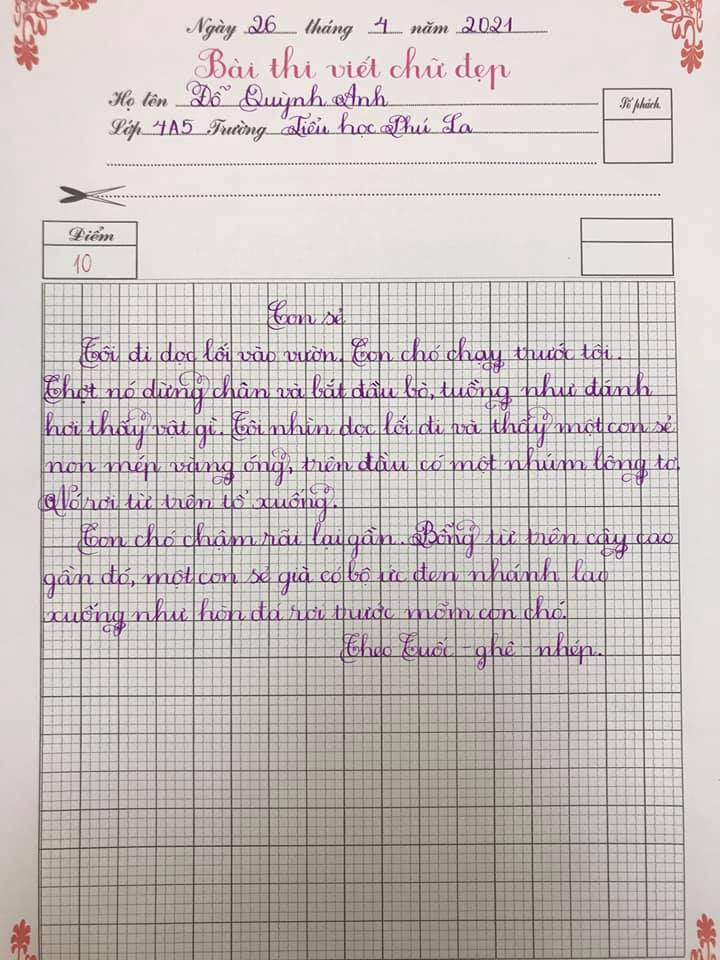 Ngày 26 tháng 4 năm 2021
Bài thi viết chữ đẹp
Họ tên Đỗ Quỳnh Anh
Số phách
Lớp 4A5 Trường Tiểu học Phú La
Điểm
10
Con sẻ
Tôi đi dọc lối vào vườn. Con chó chạy trước tôi.
Chợt nó dừng chân và bắt đầu bò, tuồng như đánh
hơi thấy vật gì. Tôi nhìn dọc lối đi và thấy một con sẻ
non mép vàng óng, trên đầu có một nhúm lông tơ.
Nó rơi từ trên tổ xuống.
Con chó chậm rãi lại gần. Bỗng từ trên cây cao
gần đó, một con sẻ già có bộ ức đen nhánh lao
xuống như hòn đá rơi trước mõm con chó.
Theo Tuốc - ghê - nhép.